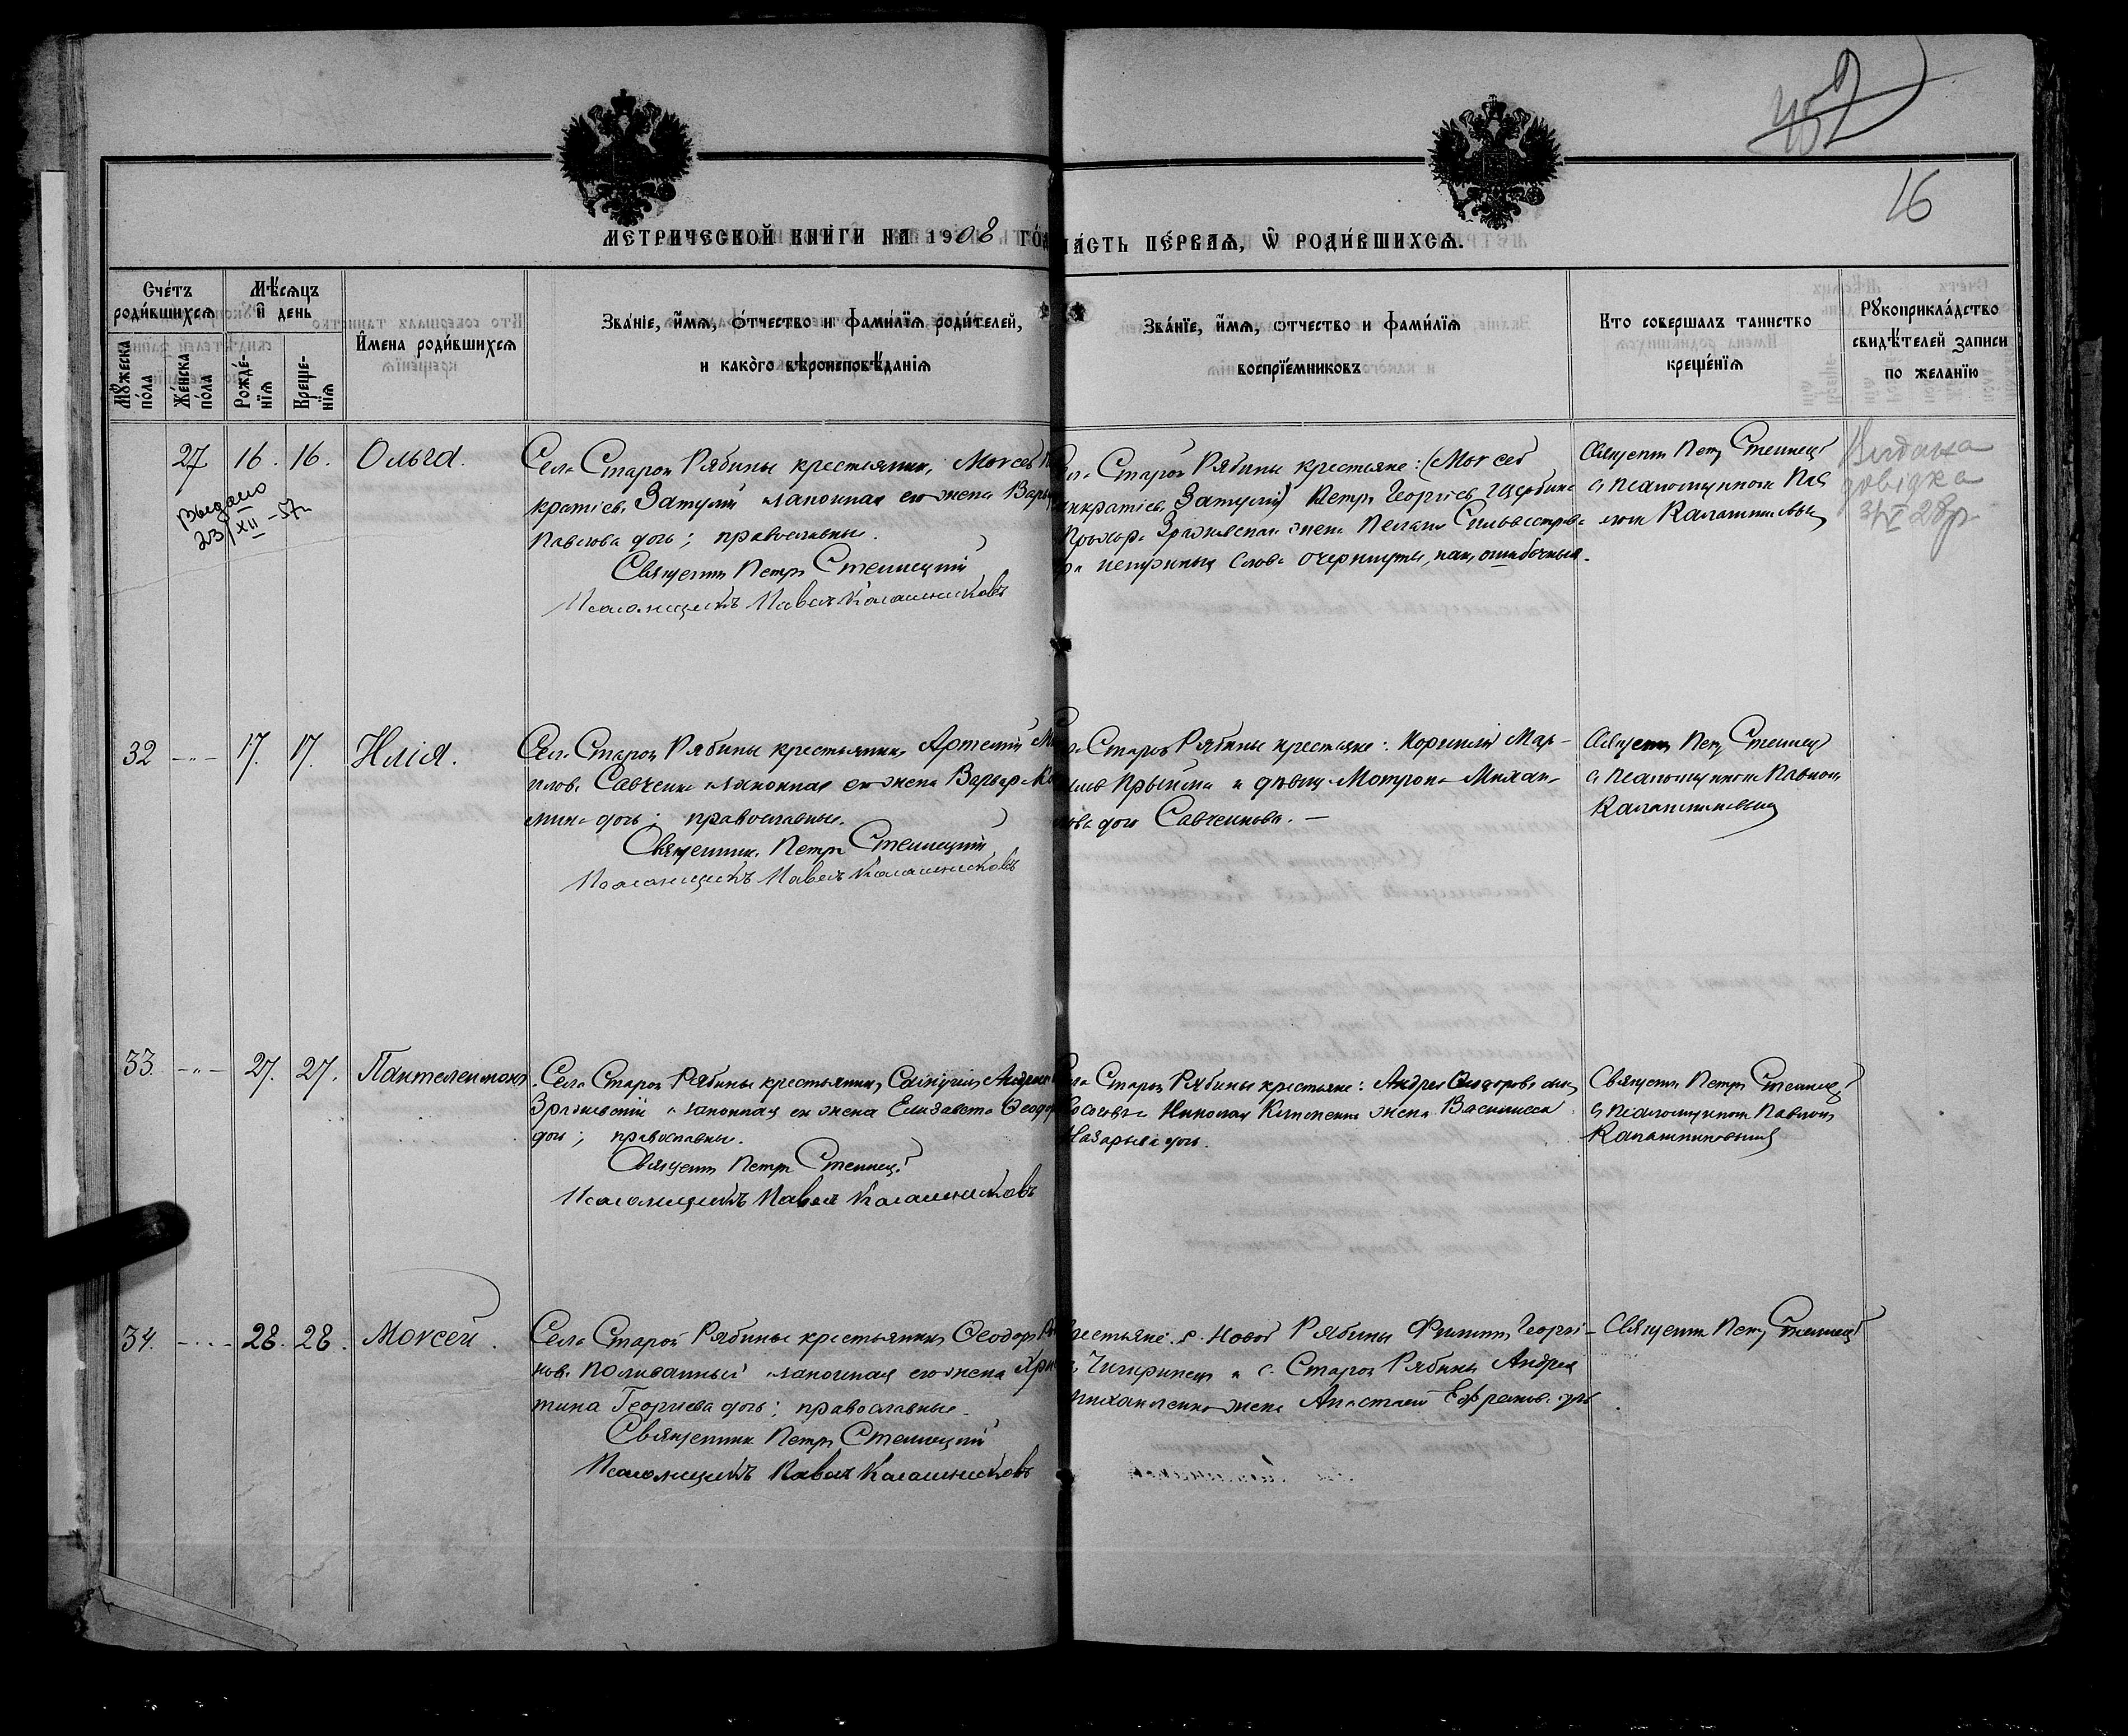 16
МЕТРИЧЕСКОЙ КНИГИ НА 1908 ГО́Д
ЧА́СТЬ ПЕ́РВАЯ, Ѡ РОДИ́ВШИХСЯ.
Сче́тъ роди́вшихся
Мꙋ́жеска по́ла
Же́нска по́ла
Мѣ́сяцъ и день
Рожде́нїя
Креще́нїя
И́мена роди́вшихся
Зва́нїе, и́мя, о́тчество и фами́лїя роди́телей,
и како́го вѣроисповѣ́данїя
Зва́нїе, и́мя, отчество и фами́лїя
воспрїе́мниковъ
Кто совершалъ таинство
креще́нїя
Рꙋкоприкла́дство
свидѣ́телей записи
по желанїю
27 16. 16. Ольга.
Выдано
23/XII - 57
Села Старой Рябины крестьянинъ Моѵсей
кратіевъ Затулій и законная его жена Варв
Павлова дочь; православные.
Священникъ Петръ Стеллецкій
Псаломщикъ Павелъ Калашниковъ
Старой Рябины крестьяне: (Моѵсей
нкратіевъ Затулій) Петръ Георгіевъ Щербина
Прохора Зражевская жена Пелагія Сильвестрова
слова очеркнуты, какъ ошибочныя.
Священникъ Петръ Стеллецкій
съ псаломщикомъ Пав
ломъ Калашниковымъ
Видана
довідка
28р.
32 -„- 17. 17. Илія.
Села Старой Рябины крестьянинъ Артемій
иловъ Савченко и законная его жена Варвара
мина дочь; православные.
Священникъ Петръ Стеллецкій
Псаломщикъ Павелъ Калашниковъ
Старой Рябины крестьяне: Корнилій Мар-
Прыйма и дѣвица Матрона Михаи-
лова дочь Савченкова. —
Священникъ Петръ Стеллецкій
съ псаломщикомъ Павломъ
Калашниковымъ
33. -„- 27. 27. Пантелеимонъ.
Села Старой Рябины крестьянинъ Самуилъ Андрее
Зражевскій и законная его жена Елизавета Ѳеодор
дочь; православные.
Священникъ Петръ Стеллецкій
Псаломщикъ Павелъ Калашниковъ
Старой Рябины крестьяне: Андрей Ѳеодоровъ
Николая жена Василисса
Назарьева дочь.
Священникъ Петръ Стеллецкій
съ псаломщикомъ Павломъ
Калашниковымъ
34. -„- 28. 28. Моѵсей.
Села Старой Рябины крестьянинъ Ѳеодоръ
новъ Поливанный и законная его жена Хри
тина Георгіева дочь; православные.
Священникъ Петръ Стеллецкій
Псаломщикъ Павелъ Калашниковъ
Крестьяне: с. Новой Рябины Филиппъ Георгі-
Чигиринецъ и с. Старой Рябины Андрея
Михайленко жена Анастасія Ефремова дочь.
Священникъ Петръ Стеллецкій